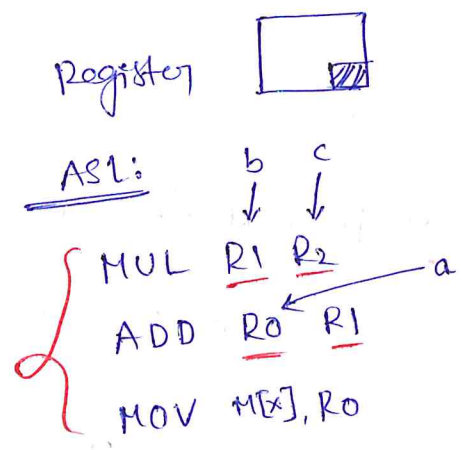 Register
ASL:
b c
MUL R1 R2
a
ADD R0 R1
MOV M[x], R0